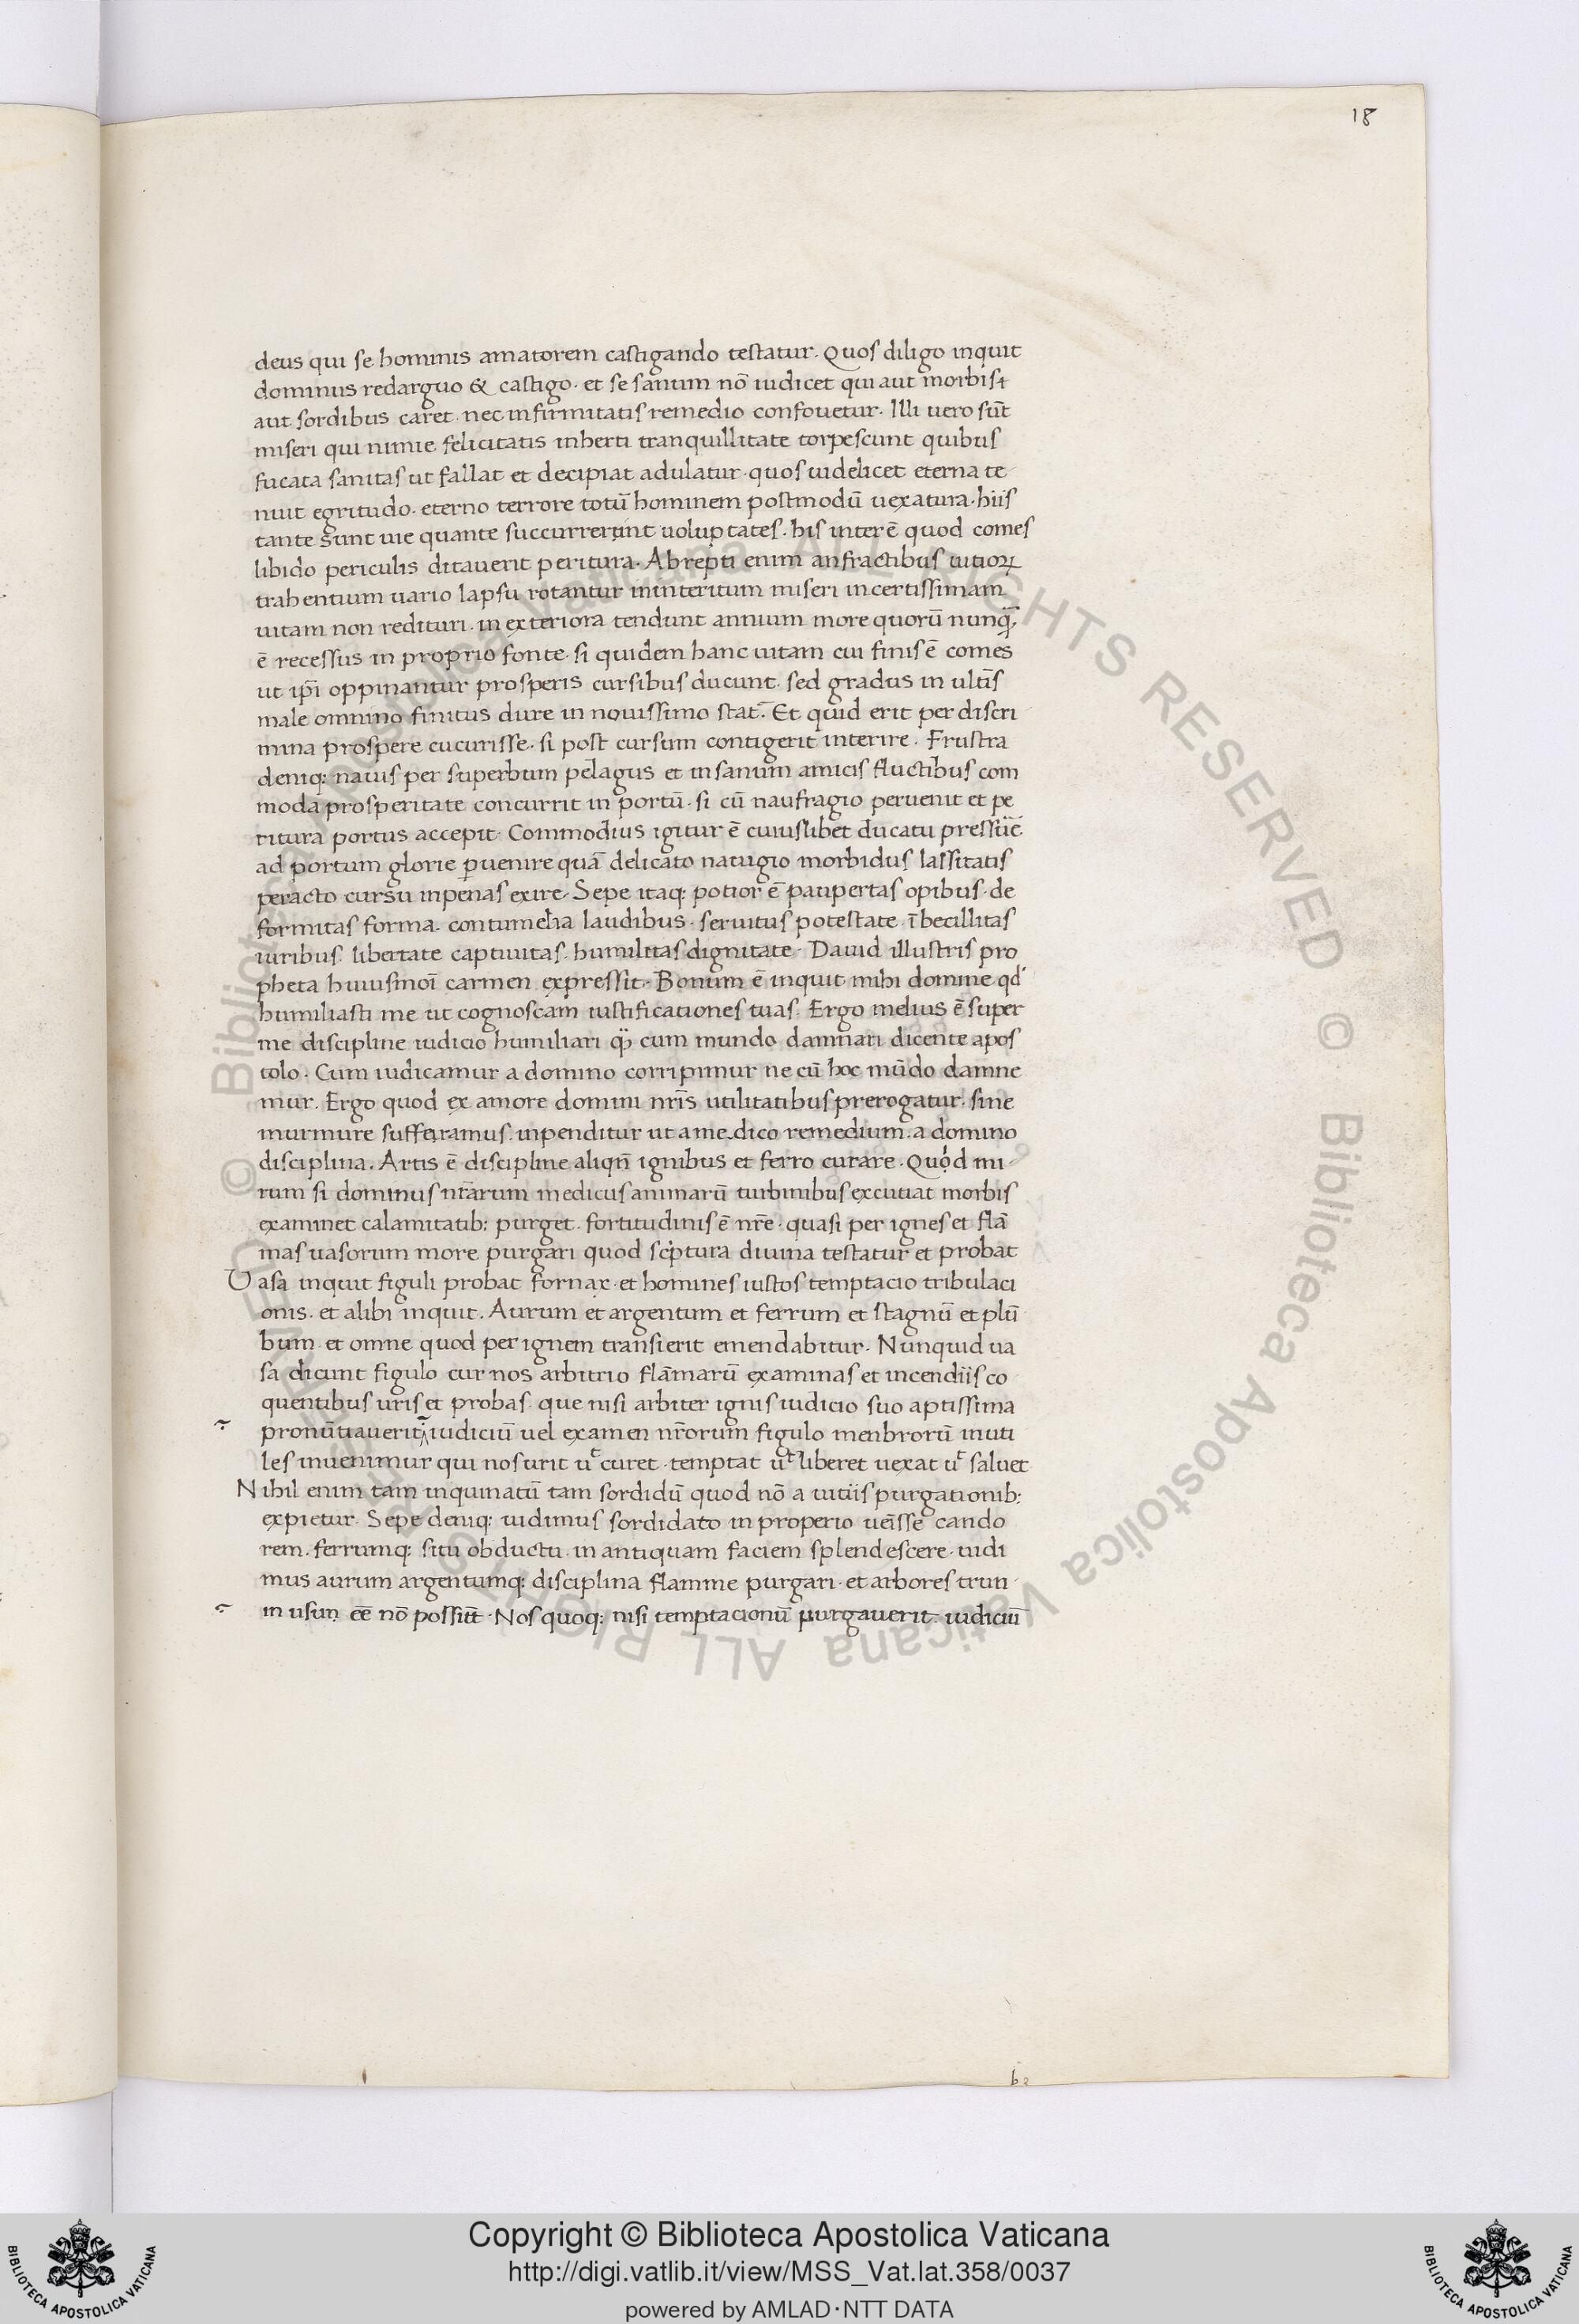 18
deus qui se hominis amatorem castigando testatur. Quos diligo inquit
dominus redarguo & castigo. et se sanum nō iudicet qui aut morbis
aut sordibus caret. nec infirmitatis remedio confouetur. Illi uero sūt
miseri qui nimie felicitatis inherti tranquillitate torpescunt quibus
fucata sanitas ut fallat et decipiat adulatur. quos uidelicet eterna te
nuit egritudo. eterno terrore totū hominem postmodū uexatura. hiis
tante sunt uie quante succurrerunt uoluptates. his inter ē quod comes
libido periculis ditauerit peritura. Abrepti enim anfractibus uitioꝝ
trahentium uario lapsu rotantur ininteritum miseri incertissimam
uitam non redituri. in exteriora tendunt amnium more quorū nunq̄
ē recessus in proprio fonte. si quidem hanc uitam cui finis ē comes
ut ip̄i oppinantur prosperis cursibus ducunt. sed gradus in ultīs
male omnino finitus dure in nouissimo stat. Et quid erit per discri
mina prospere cucurisse. si post cursum contigerit interire. Frustra
deniq: nauis per superbum pelagus et insanum amicis fluctibus com
moda prosperitate concurrit in portū. si cū naufragio peruenit et pe
ritura portus accepit. Commodius igitur ē cuiuslibet ducatu pressure
ad portum glorie ꝑuenire quā delicato nauigio morbidus lassitatis
peracto cursu inpenas exire. Sepe itaq: potior ē paupertas opibus. de
formitas forma. contumelia laudibus. seruitus potestate. ībecillitas
uiribus. libertate captiuitas. humilitas dignitate. Dauid illustris pro
pheta huiusmōi carmen expressit. Bonum ē inquit mihi domine qd
humiliasti me ut cognoscam iustificationes tuas. Ergo melius ē super
me discipline iudicio humiliari q̈ cum mundo damnari dicente apos
tolo. Cum iudicamur a domino corripimur ne cū hoc mūdo damne
mur. Ergo quod ex amore domini nr̄is utilitatibus prerogatur. sine
murmure sufferamus. inpenditur ut a medico remedium. a domino
disciplina. Artis ē discipline aliqn̄ ignibus et ferro curare. Quod mi
rum si dominus nr̄arum medicus animarū turbinibus excutiat morbis
examinet calamitatib: purget. fortitudinis ē nr̄e. quasi per ignes et flā
mas uasorum more purgari quod scriptura diuina testatur et probat
Vasa inquit figuli probat fornax. et homines iustos temptacio tribulaci
onis. et alibi inquit. Aurum et argentum et ferrum et stagnū et plū
bum. et omne quod per ignem transierit emendabitur. Nunquid ua
sa dicunt figulo cur nos arbitrio flāmarū examinas et incendiis co
quentibus uris et probas. que nisi arbiter ignis iudicio suo aptissima
pronūtiauerit iudiciū uel examen nr̄orum figulo menbrorū inuti
les inuenimur qui nos urit ut curet. temptat ut liberet uexat ut saluet
Nihil enim tam inquinatū tam sordidū quod nō a uitiis purgationib:
expietur. Sepe deniq: uidimus sordidato in properio uēisse cando
rem. ferrumq: situ obductu. in antiquam faciem splendescere. uidi
mus aurum argentumq: disciplina flamme purgari. et arbores trun
in usum eē nō possūt. Nos quoq: nisi temptacionū purgauerit iudiciū
b2
© Biblioteca Apostolica Vaticana ALL RIGHTS RESERVED © Biblioteca Apostolica Vaticana ALL RIGHTS RESERVED
Copyright © Biblioteca Apostolica Vaticana
http://digi.vatlib.it/view/MSS_Vat.lat.358/0037
powered by AMLAD·NTT DATA
BIBLIOTECA APOSTOLICA VATICANA
BIBLIOTECA APOSTOLICA VATICANA